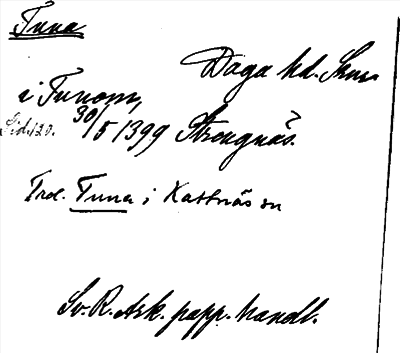 Tuna
Daga hd.
i Tunom,
Sid. 130. 30/5 1399 Strengnäs.
Trol. Tuna i Kattnäs sn
Sv. R. Ark. papp. handl.